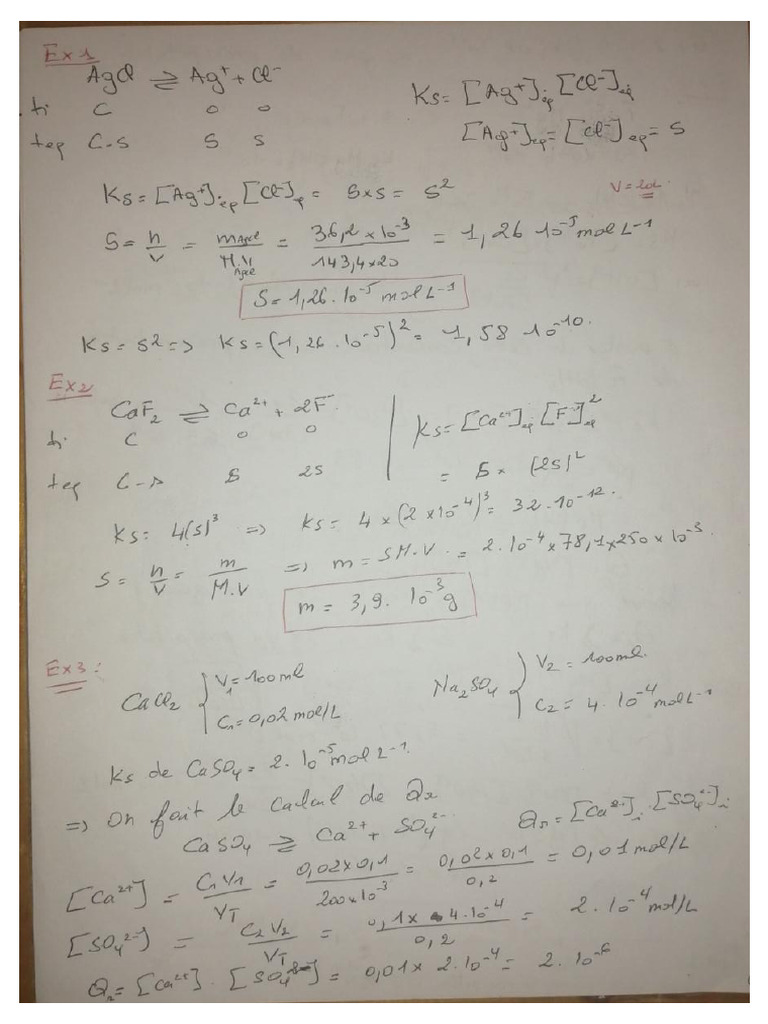 Ex1
AgCl ⇌ Ag⁺ + Cl⁻
ti C 0 0
teq C-s S s
Ks = [Ag⁺]eq [Cl⁻]eq
[Ag⁺]eq = [Cl⁻]eq = S
Ks = [Ag⁺]eq [Cl⁻]eq = S×s = S²
V = 20L
S = n/V = mAgCl/M.VAgCl = 36,2×10⁻³/143,4×20 = 1,26 10⁻⁵ mol L⁻¹
S = 1,26. 10⁻⁵ mol L⁻¹
Ks = s² => Ks = (1,26.10⁻⁵)² = 1,58 10⁻¹⁰.
Ex2
CaF₂ ⇌ Ca²⁺ + 2F⁻
ti C 0 0
teq C-s S 2s
Ks = [Ca²⁺]eq [F⁻]²eq
= S × (2s)²
Ks = 4(s)³ => Ks = 4×(2×10⁻⁴)³ = 32.10⁻¹².
S = n/V = m/M.V => m = SM.V = 2.10⁻⁴×78,1×250×10⁻³.
m = 3,9. 10⁻³g
Ex3:
CaCl₂ { V₁ = 100ml
C₁ = 0,02 mol/L
Na₂SO₄ { V₂ = 100ml.
C₂ = 4. 10⁻⁴ mol L⁻¹
Ks de CaSO₄ = 2. 10⁻⁵ mol L⁻¹.
=> On fait le calcul de Qr
CaSO₄ ⇌ Ca²⁺ + SO₄²⁻
Qr = [Ca²⁺]i . [SO₄²⁻]i
[Ca²⁺] = C₁V₁/VT = 0,02×0,1/200×10⁻³ = 0,02×0,1/0,2 = 0,01 mol/L
[SO₄²⁻] = C₂V₂/VT = 0,1×4.10⁻⁴/0,2 = 2. 10⁻⁴ mol/L
Qr = [Ca²⁺] . [SO₄²⁻] = 0,01× 2.10⁻⁴ = 2. 10⁻⁶